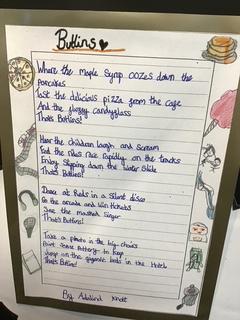 Butlins
Where the maple Syrup oozes down the
pancakes
Tast the delicious pizza from the cafe
And the fluzzy candyfloss
Thats Butlins!
Hear the children laugh and scream
Feel the rides race rapidly on the tracks
Enjoy Slipping down the Water Slide
Thats Butlins!
Dance at Reds in a Silent disco
Go the arcade and win tickets
See the masked Singer
That's Butlins!
Take a photo in the big chairs
Paint Some Pottery to Keep
Jump on the gigantic beds in the Hotel
Thats Butlins!
By Adalind